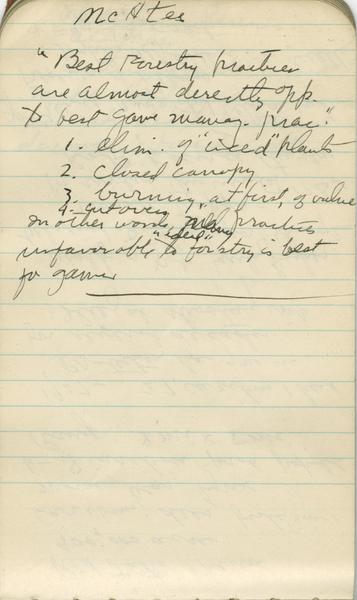 McAtee
"Best Forestry practices
are almost directly opp.
to best game manag. prac."
1. elim. of "weed" plants
2. closed canopy
3. burning, at first, of value
4. cut over
In other words, practices
"ideal"
unfavorable to forestry is best
for game